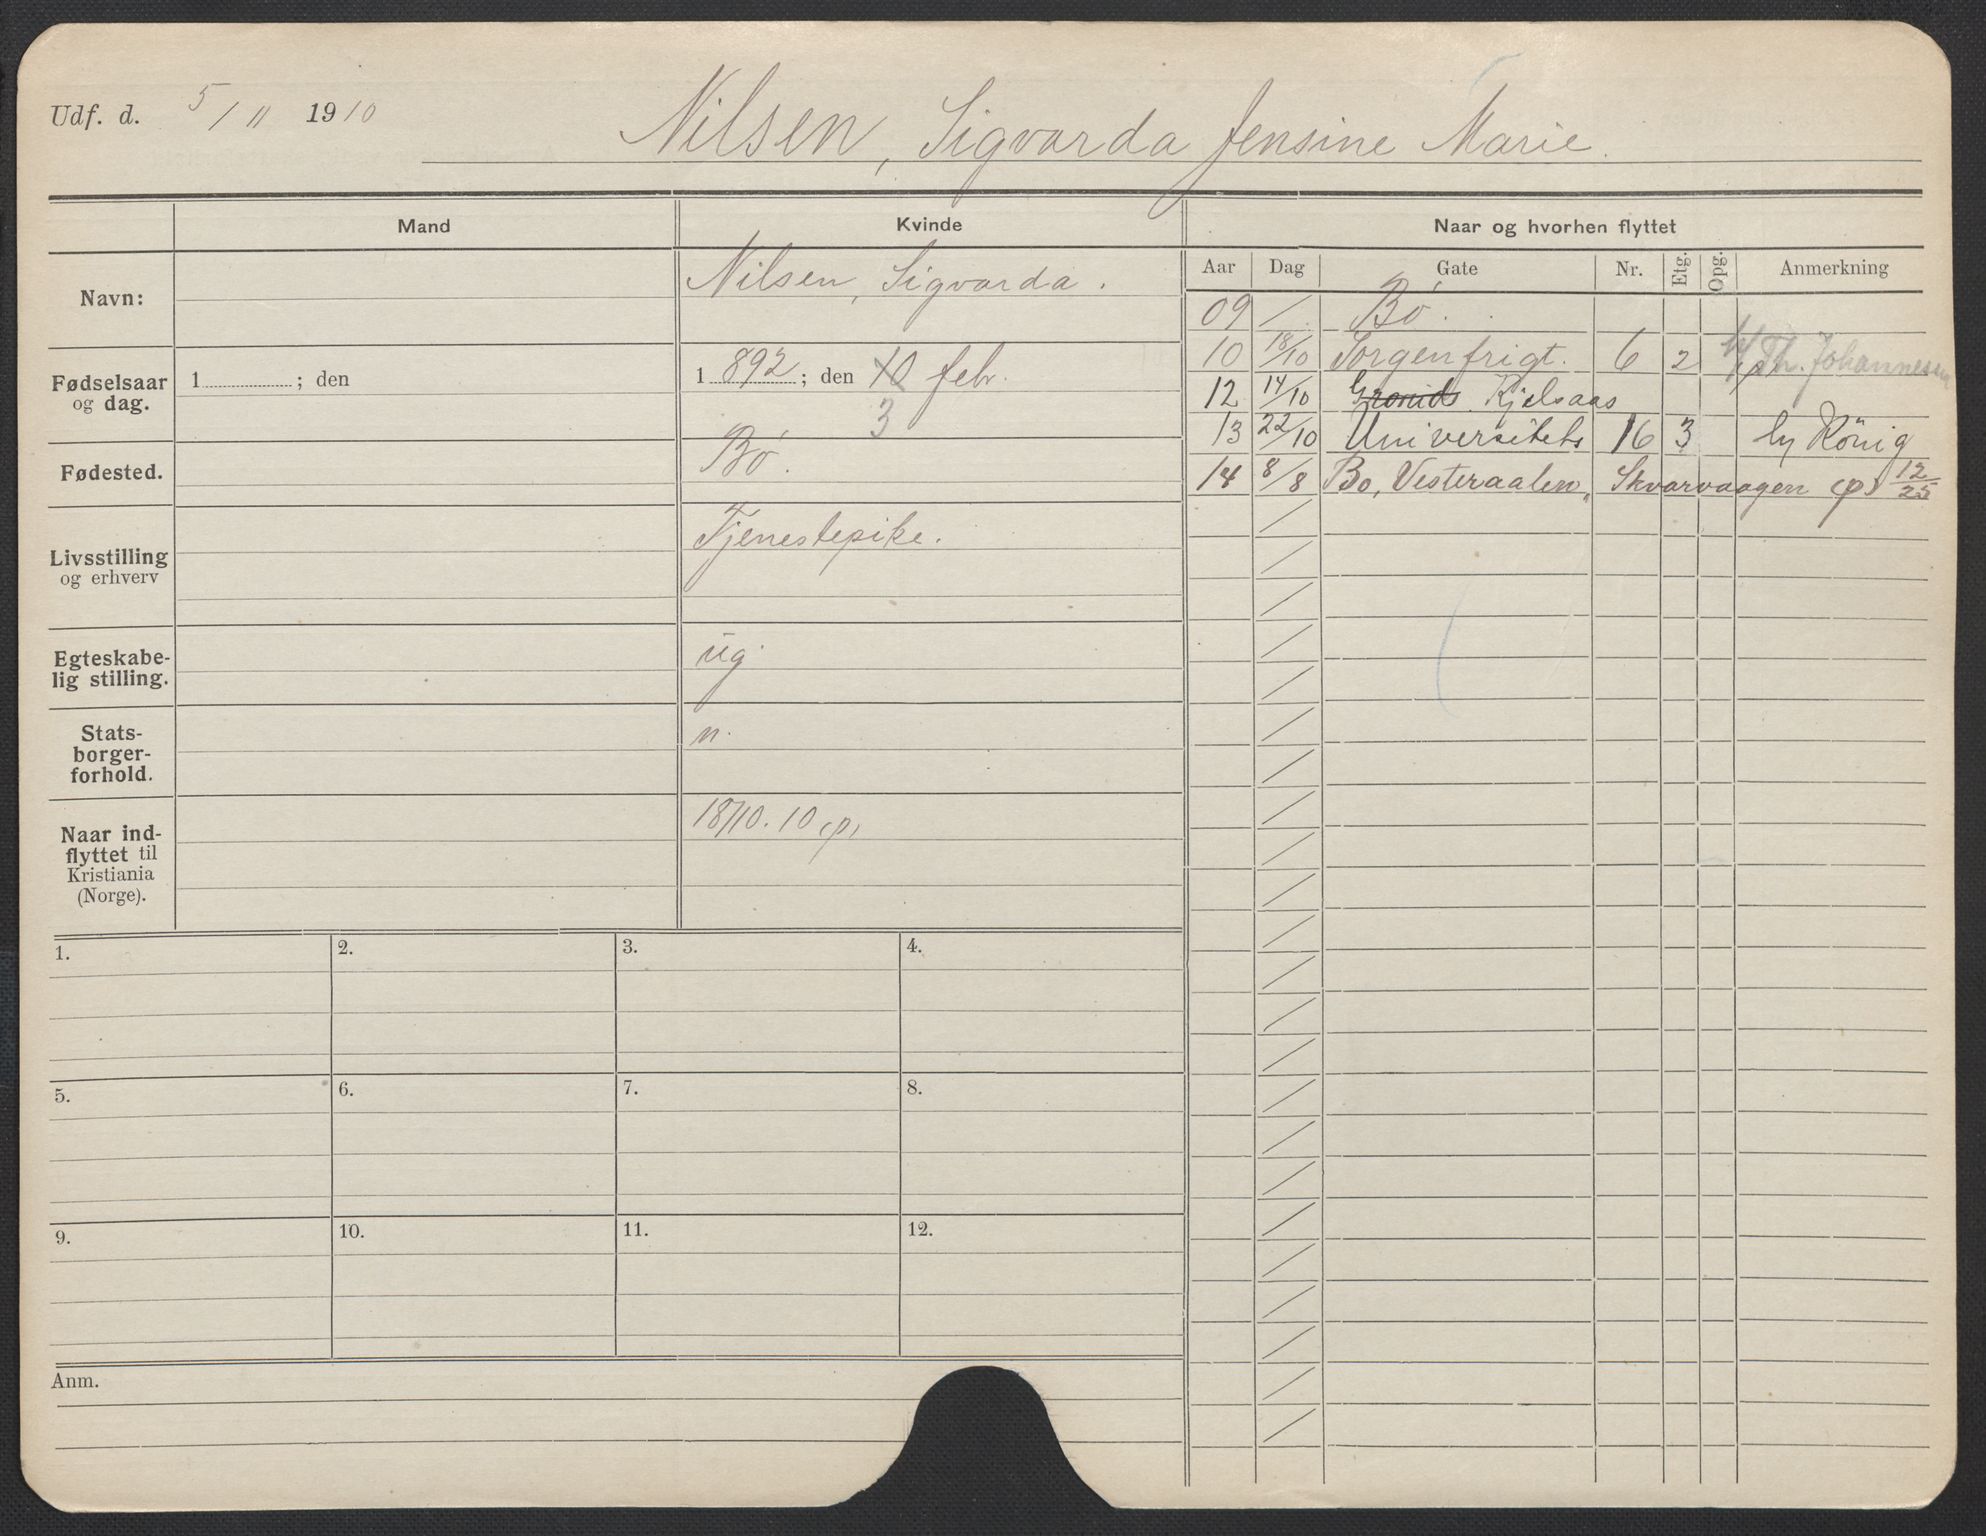 Udf. d. 5/11 1910
Nilsen, Sigvarda Jensine Marie.
Mand
Kvinde
Naar og hvorhen flyttet
Navn:
Nilsen, Sigvarda.
Fødselsaar og dag.
1 ; den
1 892 ; den 10 febr.
3
Fødested.
Bø.
Livsstilling og erhverv
Tjenestepike.
Egteskabe-
lig stilling.
ug.
Stats-
borger-
forhold.
n.
Naar ind-
flyttet til
Kristiania
(Norge).
18/10.10 (p)
Aar Dag Gate Nr. Etg. Opg. Anmerkning
09 / Bø.
10 18/10 Sorgenfrigt. 6 2 Th. Johannesen
12 14/10 Kjelsaas
13 22/10 Universitets 16 3 by König
14 8/8 Bø, Vesteraalen, Skvarvaagen (p) 12/25
1. 2. 3. 4.
5. 6. 7. 8.
9. 10. 11. 12.
Anm.